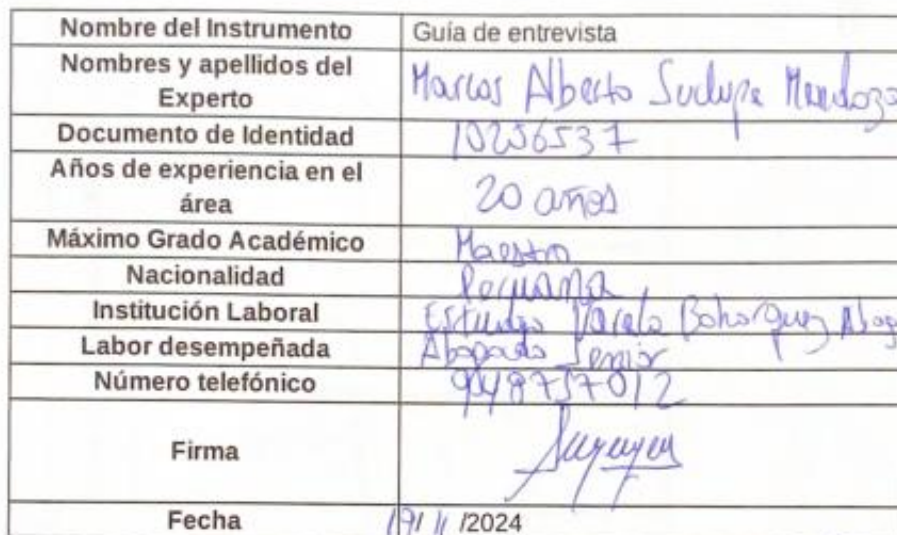 Nombre del Instrumento Guía de entrevista
Nombres y apellidos del
Experto Marcos Alberto Suclupe Mendoza
Documento de Identidad 10256537
Años de experiencia en el
área 20 años
Máximo Grado Académico Maestro
Nacionalidad Peruana
Institución Laboral Estudio Bohorquez Abog
Labor desempeñada Abogado Senior
Número telefónico
Firma
Fecha 19/ 11 /2024